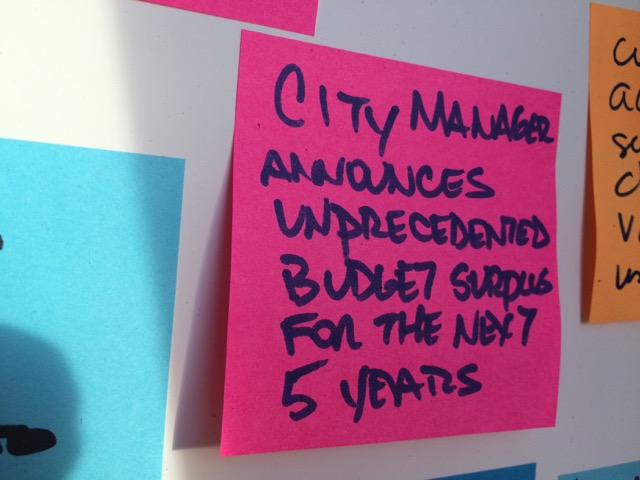 CITY MANAGER
ANNOUNCES
UNPRECEDENTED
BUDGET SURPLUS
FOR THE NEXT
5 YEARS